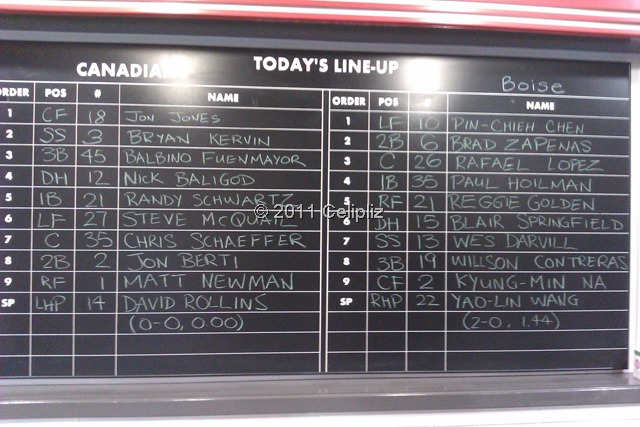 TODAY'S LINE-UP
CANADIANS
ORDER POS # NAME
1 CF 18 JON JONES
2 SS 3 BRYAN KERVIN
3 3B 45 BALBINO FUENMAYOR
4 DH 12 NICK BALIGOD
5 1B 21 RANDY SCHWARTZ
6 LF 27 STEVE McQUAIL
7 C 35 CHRIS SCHAEFFER
8 2B 2 JON BERTI
9 RF 1 MATT NEWMAN
SP LHP 14 DAVID ROLLINS
(0-0, 0.00)
Boise
ORDER POS # NAME
1 LF 10 PIN-CHIEH CHEN
2 2B 6 BRAD ZAPENAS
3 C 26 RAFAEL LOPEZ
4 1B 35 PAUL HOILMAN
5 RF 21 REGGIE GOLDEN
6 DH 15 BLAIR SPRINGFIELD
7 SS 13 WES DARVILL
8 3B 19 WILLSON CONTRERAS
9 CF 2 KYUNG-MIN NA
SP RHP 22 YAO-LIN WANG
(2-0, 1.44)
© 2011 Cellpliz